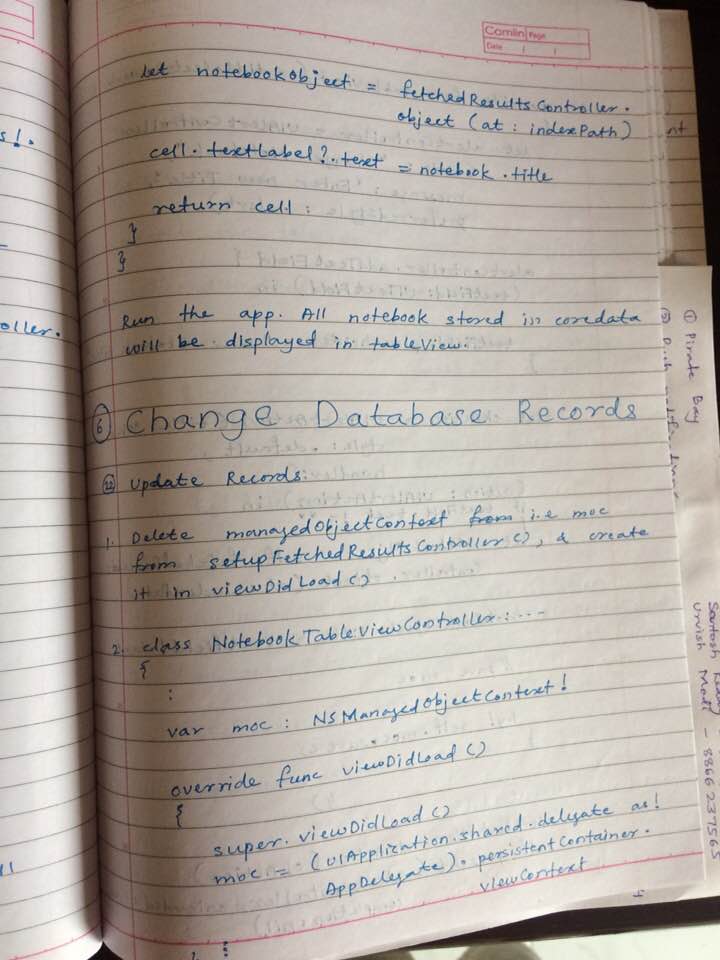 Camlin Page
Date / /
let notebookobject = fetchedResultsController.
object (at : indexPath)
cell.textLabel?.text = notebook.title
return cell :
}
}
Run the app. All notebook stored in coredata
will be displayed in tableView.
⑥ Change Database Records
㉒ Update Records:
1. Delete managedObjectContext from i.e moc
from setupFetchedResultsController(), & create
it in viewDidLoad().
2. class NotebookTableViewController : ----
{
:
var moc : NSManagedObjectContext!
override func viewDidLoad()
{
super.viewDidLoad()
moc = (UIApplication.shared.delegate as!
AppDelegate).persistentContainer.
viewContext
s!.
oller.
nt
① Pirate Bay
②
Santosh
Urvish Modi - 8866237565